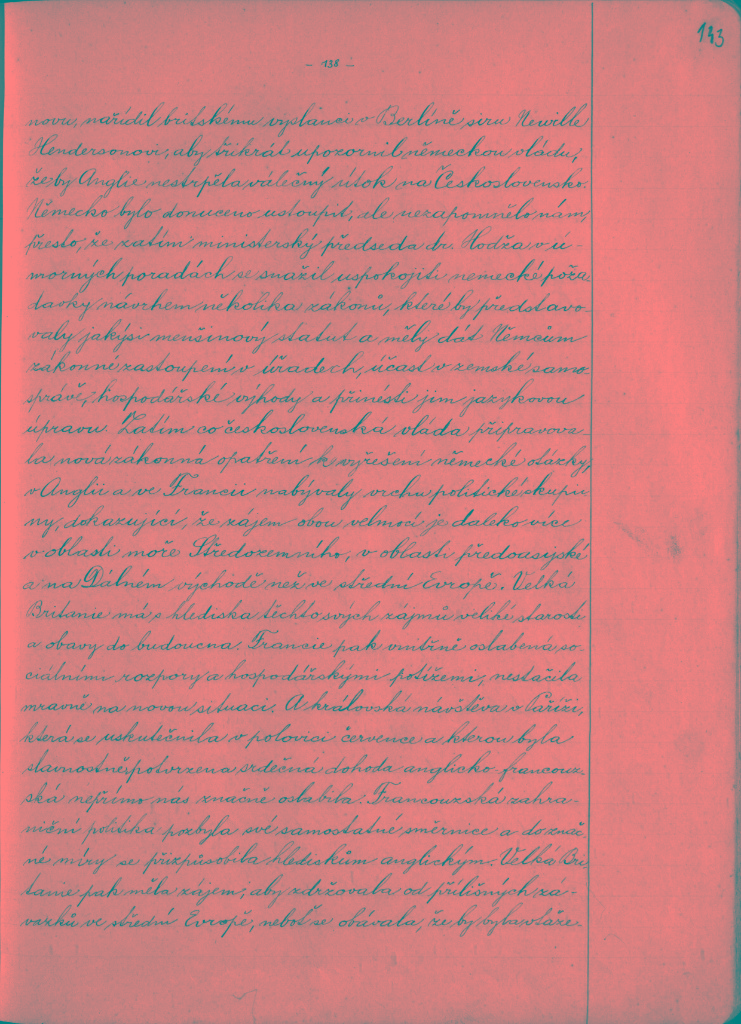 133
- 138 -
novu, nařídil britskému vyslanci v Berlíně, siru Newille
Hendersonovi, aby třikrát upozornil německou vládu,
že by Anglie nestrpěla válečný útok na Československo.
Německo bylo donuceno ustoupiti, ale nezapomnělo nám,
přesto, že zatím ministerský předseda dr. Hodža v ú-
morných poradách se snažil uspokojiti nemecké poža-
davky návrhem několika zákonů, které by představo-
valy jakýsi menšinový statut a měly dát Němcům
zákonné zastoupení v úřadech, účast v zemské samo-
správě, hospodářské výhody a přinésti jim jazykovou
úpravu. Zatím co československá vláda připravova-
la nová zákonná opatření k vyřešení německé otázky,
v Anglii a ve Francii nabývaly vrchu politické skupi-
ny, dokazující, že zájem obou velmocí je daleko více
v oblasti moře Středozemního, v oblasti předoasijské
a na Dálném východě než ve střední Evropě. Velká
Britanie má s hlediska těchto svých zájmů veliké starosti
a obavy do budoucna. Francie pak vnitřně oslabená so-
ciálními rozpory a hospodářskými potížemi, nestačila
mravně na novou situaci. A královská návštěva v Paříži,
která se uskutečnila v polovici července a kterou byla
slavnostně potvrzena srdečná dohoda anglicko-francouz-
ská nepřímo nás značně oslabila. Francouzská zahra-
niční politika pozbyla své samostatné směrnice a do znač-
né míry se přizpůsobila hlediskům anglickým. Velká Bri-
tanie pak měla zájem, aby zdržovala od přílišných zá-
vazků ve střední Evropě, neboť se obávala, že by byla vtaže-